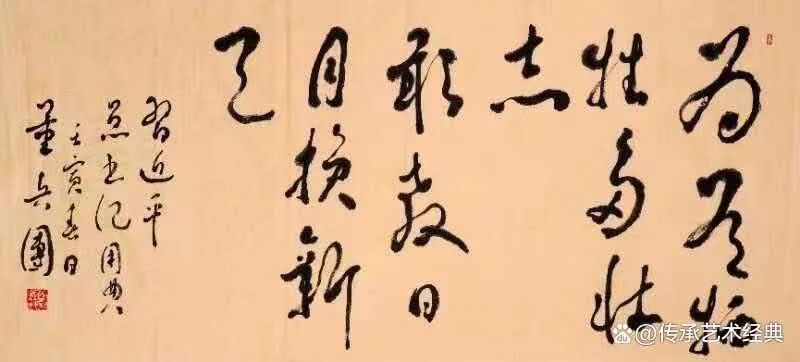 为有牺
牲多壮
志
敢教日
月换新
天
习近平
总书记用典
壬寅春日
董兵團
@传承艺术经典